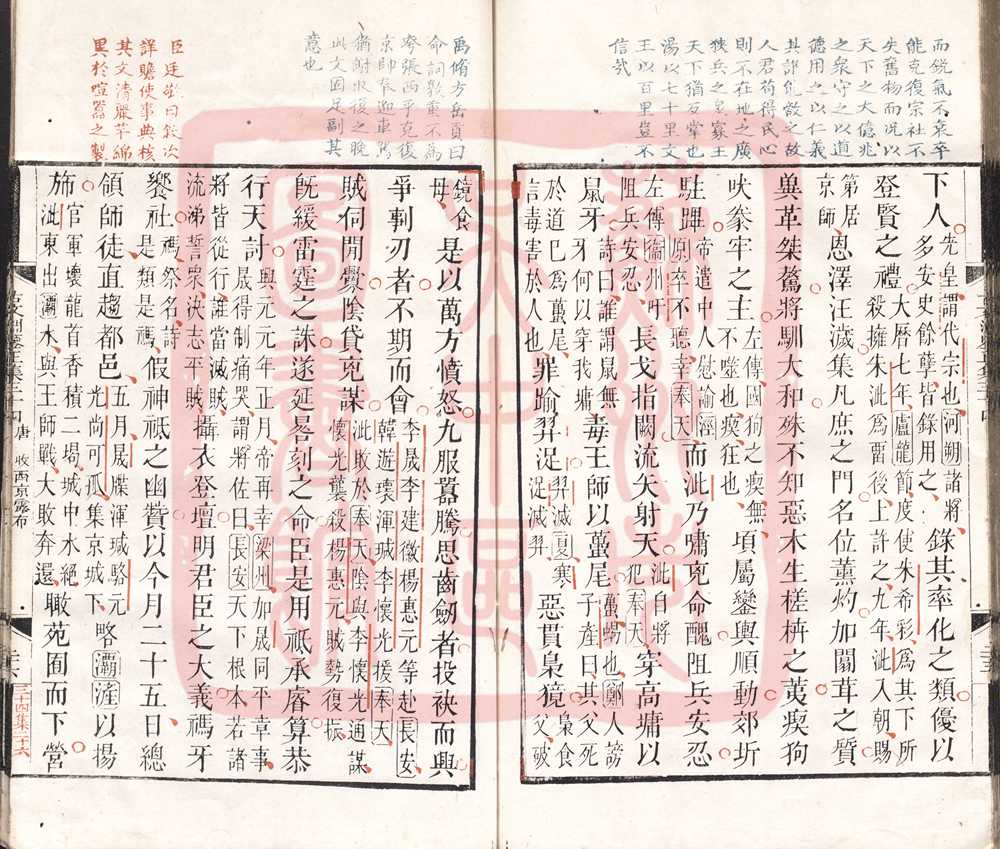 而銳氣不衰卒
能克復宗社不
失舊物而況以
天下之大億兆
之眾守之以道
德用之以仁義
其孰能敵之故
人君苟得民心
則不在地之廣
狹兵之多寡王
天下猶反掌也
湯以七十里文
王以百里豈不
信哉
下人先皇謂代宗也河朔諸將多安史餘孽皆錄用之錄其率化之類優以
登賢之禮大曆七年盧龍節度使朱希彩爲其下所殺擁朱泚爲畱後上許之九年泚入朝賜
第居京師恩澤汪濊集凡庶之門名位薰灼加闒茸之質
兾革桀驁將馴大和殊不知惡木生槎枿之荑瘈狗
吠豢牢之主左傳國狗之瘈無不噬也瘈狂也頃屬鑾輿順動郊圻
駐蹕帝遣中人慰諭涇原卒不聽幸奉天而泚乃嘯克命醜阻兵安忍
左傳衞州吁阻兵安忍長戈指闕流矢射天泚自將犯奉天穿高墉以
鼠牙詩曰誰謂鼠無牙何以穿我墉毒王師以蠆尾蠆蝎也鄭人謗子產曰其父死
於道巳爲蠆尾言毒害於人也罪踰羿浞羿滅夏寒浞滅羿惡貫梟獍梟食父破
禹脩方岳貢曰
命詞敦重不爲
夸張西平克復
京師奉迎車駕
猶謝收復之晚
此文固足副其
意也
臣廷敬曰敘次
詳贍使事典核
其文清麗芊綿
異於喧囂之製
鏡食母是以萬方憤怒九服囂騰思齒劒者投袂而興
爭剚刃者不期而會李晟李建徽楊惠元等赴長安韓遊瓌渾瑊李懷光援奉天
賊伺閒釁陰貸克謀泚敗於奉天陰與李懷光通謀懷光襲殺楊惠元賊勢復振
旣緩雷霆之誅遂延晷刻之命臣是用祗承睿算恭
行天討興元元年正月帝再幸梁州加晟同平章事晟得制痛哭謂將佐曰長安天下根本若諸
將皆從行誰當滅賊流涕誓衆決志平賊攝衣登壇明君臣之大義禡牙
饗社禡祭名詩是類是禡假神祇之幽贊以今月二十五日總
領師徒直趨都邑五月晟牒渾瑊駱元光尚可孤集京城下略灞滻以揚
旆官軍壞龍首香積二堨城中水絕泚東出灞水與王師戰大敗奔還瞰苑囿而下營
唐 收西京露布
三十四集三十六